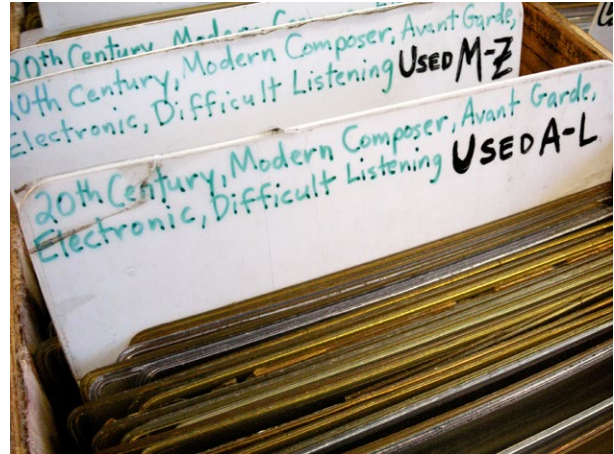 20th Century, Modern Compo
20th Century, Modern Composer, Avant Garde,
Electronic, Difficult Listening USED M-Z
20th Century, Modern Composer, Avant Garde,
Electronic, Difficult Listening USED A-L